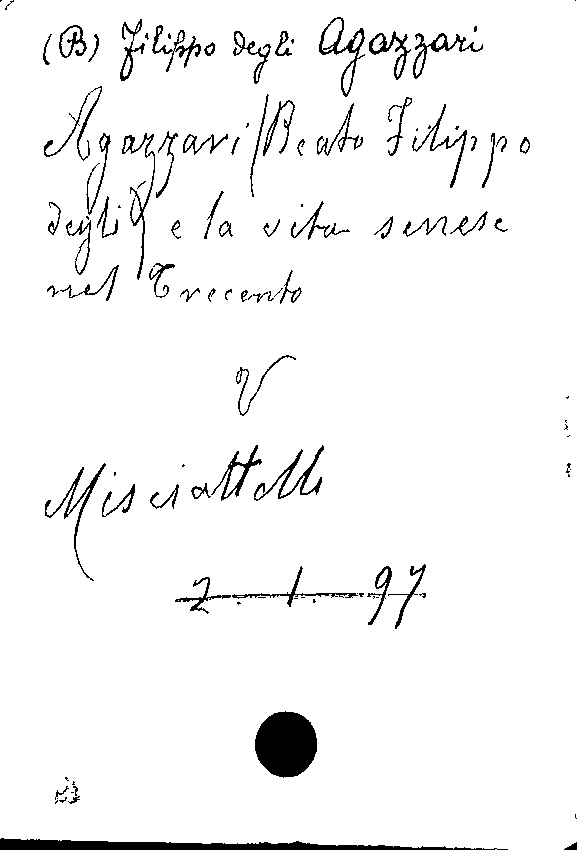 (B) Filippo degli Agazzari
Agazzari (Beato Filippo
degli) e la vita senese
nel Trecento
V
Misciattelli
2. 1. 97